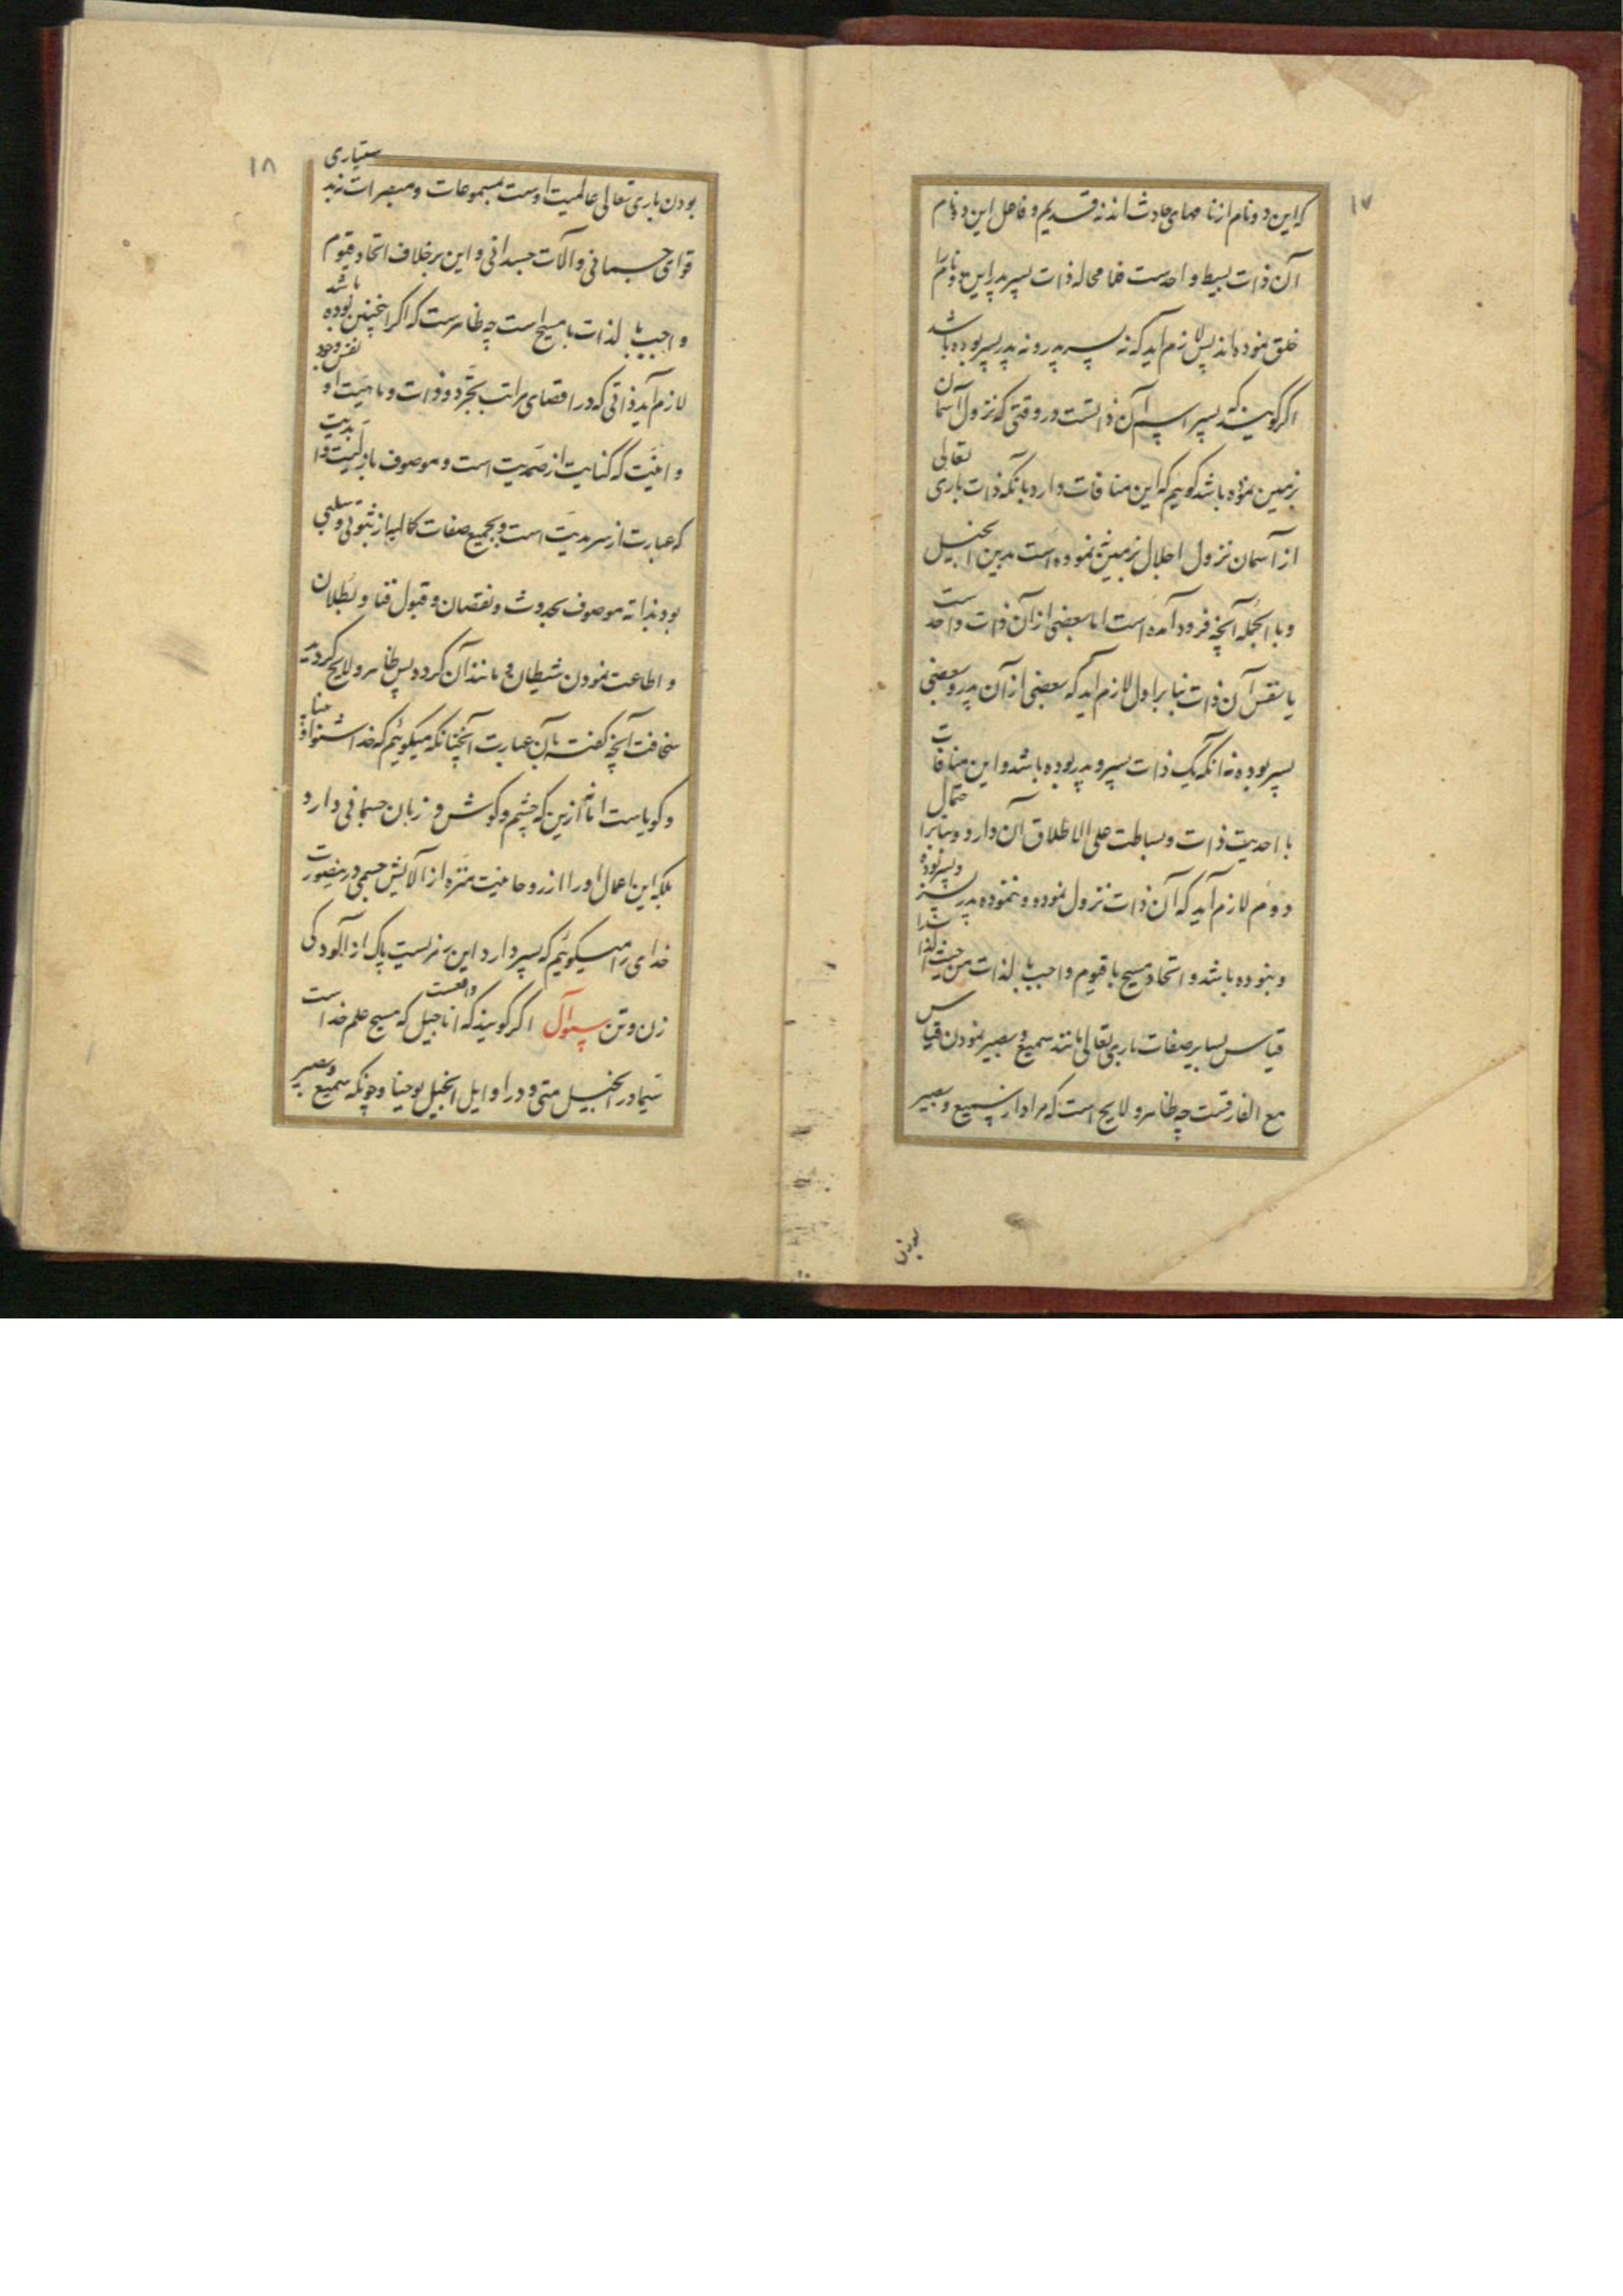 ۱۷
که این دو نام از نامهای حادث اند نه قدیم و فاعل این دو نام
آن ذات بسیط واحدست فلا محاله ذات پسر پدر این دو نام را
خلق نموده اند پس لازم آید که نه پسر پدر و نه پدر پسر بوده باشد
اگر گویند که پسر اسم آن ذاتست در وقتی که نزول از آسمان
بزمین نموده باشد گوئیم که این منافات دارد بآنکه ذات باری تعالی
از آسمان نزول اجلال بزمین نموده است بدین انجیل
و بالجمله آنچه فرود آمده است اما بعضی از آن ذات واحد است
یا نفس آن ذات بنابر اول لازم آید که بعضی از آن پدر و بعضی
پسر بوده نه آنکه یک ذات پسر و پدر بوده باشد و این منافات
با احدیت ذات و بساطت علی الاطلاق آن دارد و بنابر احتمال
دوم لازم آید که آن ذات نزول نموده و ننموده پدر پسر و پسر بوده
و نبوده باشد و اتحاد مسیح با قیوم واجب بالذات من حیث الذات را
قیاس بسایر صفات باری تعالی مانند سمیع و بصیر نمودن قیاس
مع الفارقست چه ظاهر و لایح است که مراد از سمیع و بصیر
بودن
۱۸
بودن باری تعالی عالمیت اوست بمسموعات و مبصرات نه بدستیاری
قوای جسمانی و آلات جسدانی و این برخلاف اتحاد قیوم
واجب بالذات با مسیح است چه ظاهرست که اگر اینچنین بوده باشد
لازم آید ذاتی که در اقصای مراتب تجرد و ذات و ماهیت او نفس وجود
و انیت که کنایت از صمدیت است و موصوف بازلیت و ابدیت
که عبارت از سرمدیت است و بجمیع صفات کمالیه از ثبوتی و سلبی
بود بذاته موصوف بحدوث و نقصان و قبول فنا و بطلان
و اطاعت نمودن شیطان و مانند آن گردد پس ظاهر و لایح گردید
سخافت آنچه گفته بآن عبارت آنچنانکه میگوئیم که خدا شنوا و بینا
و گویاست اما نه ازین که چشم و گوش و زبان جسمانی دارد
بلکه این اعمال او را از روحانیت منزه از آلایش جسمی در
خدای را میگوئیم که پسر دارد این نیز نسبت پاک از آلودگی
زن و تن سؤال اگر گویند که اناجیل واقعست که مسیح علم خداست
سیما در انجیل متی و در اوایل انجیل یوحنا و چونکه سمیع و بصیر